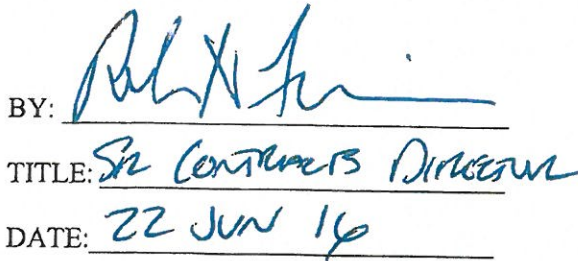 BY:
TITLE: SR CONTRACTS DIRECTOR
DATE: 22 JUN 16